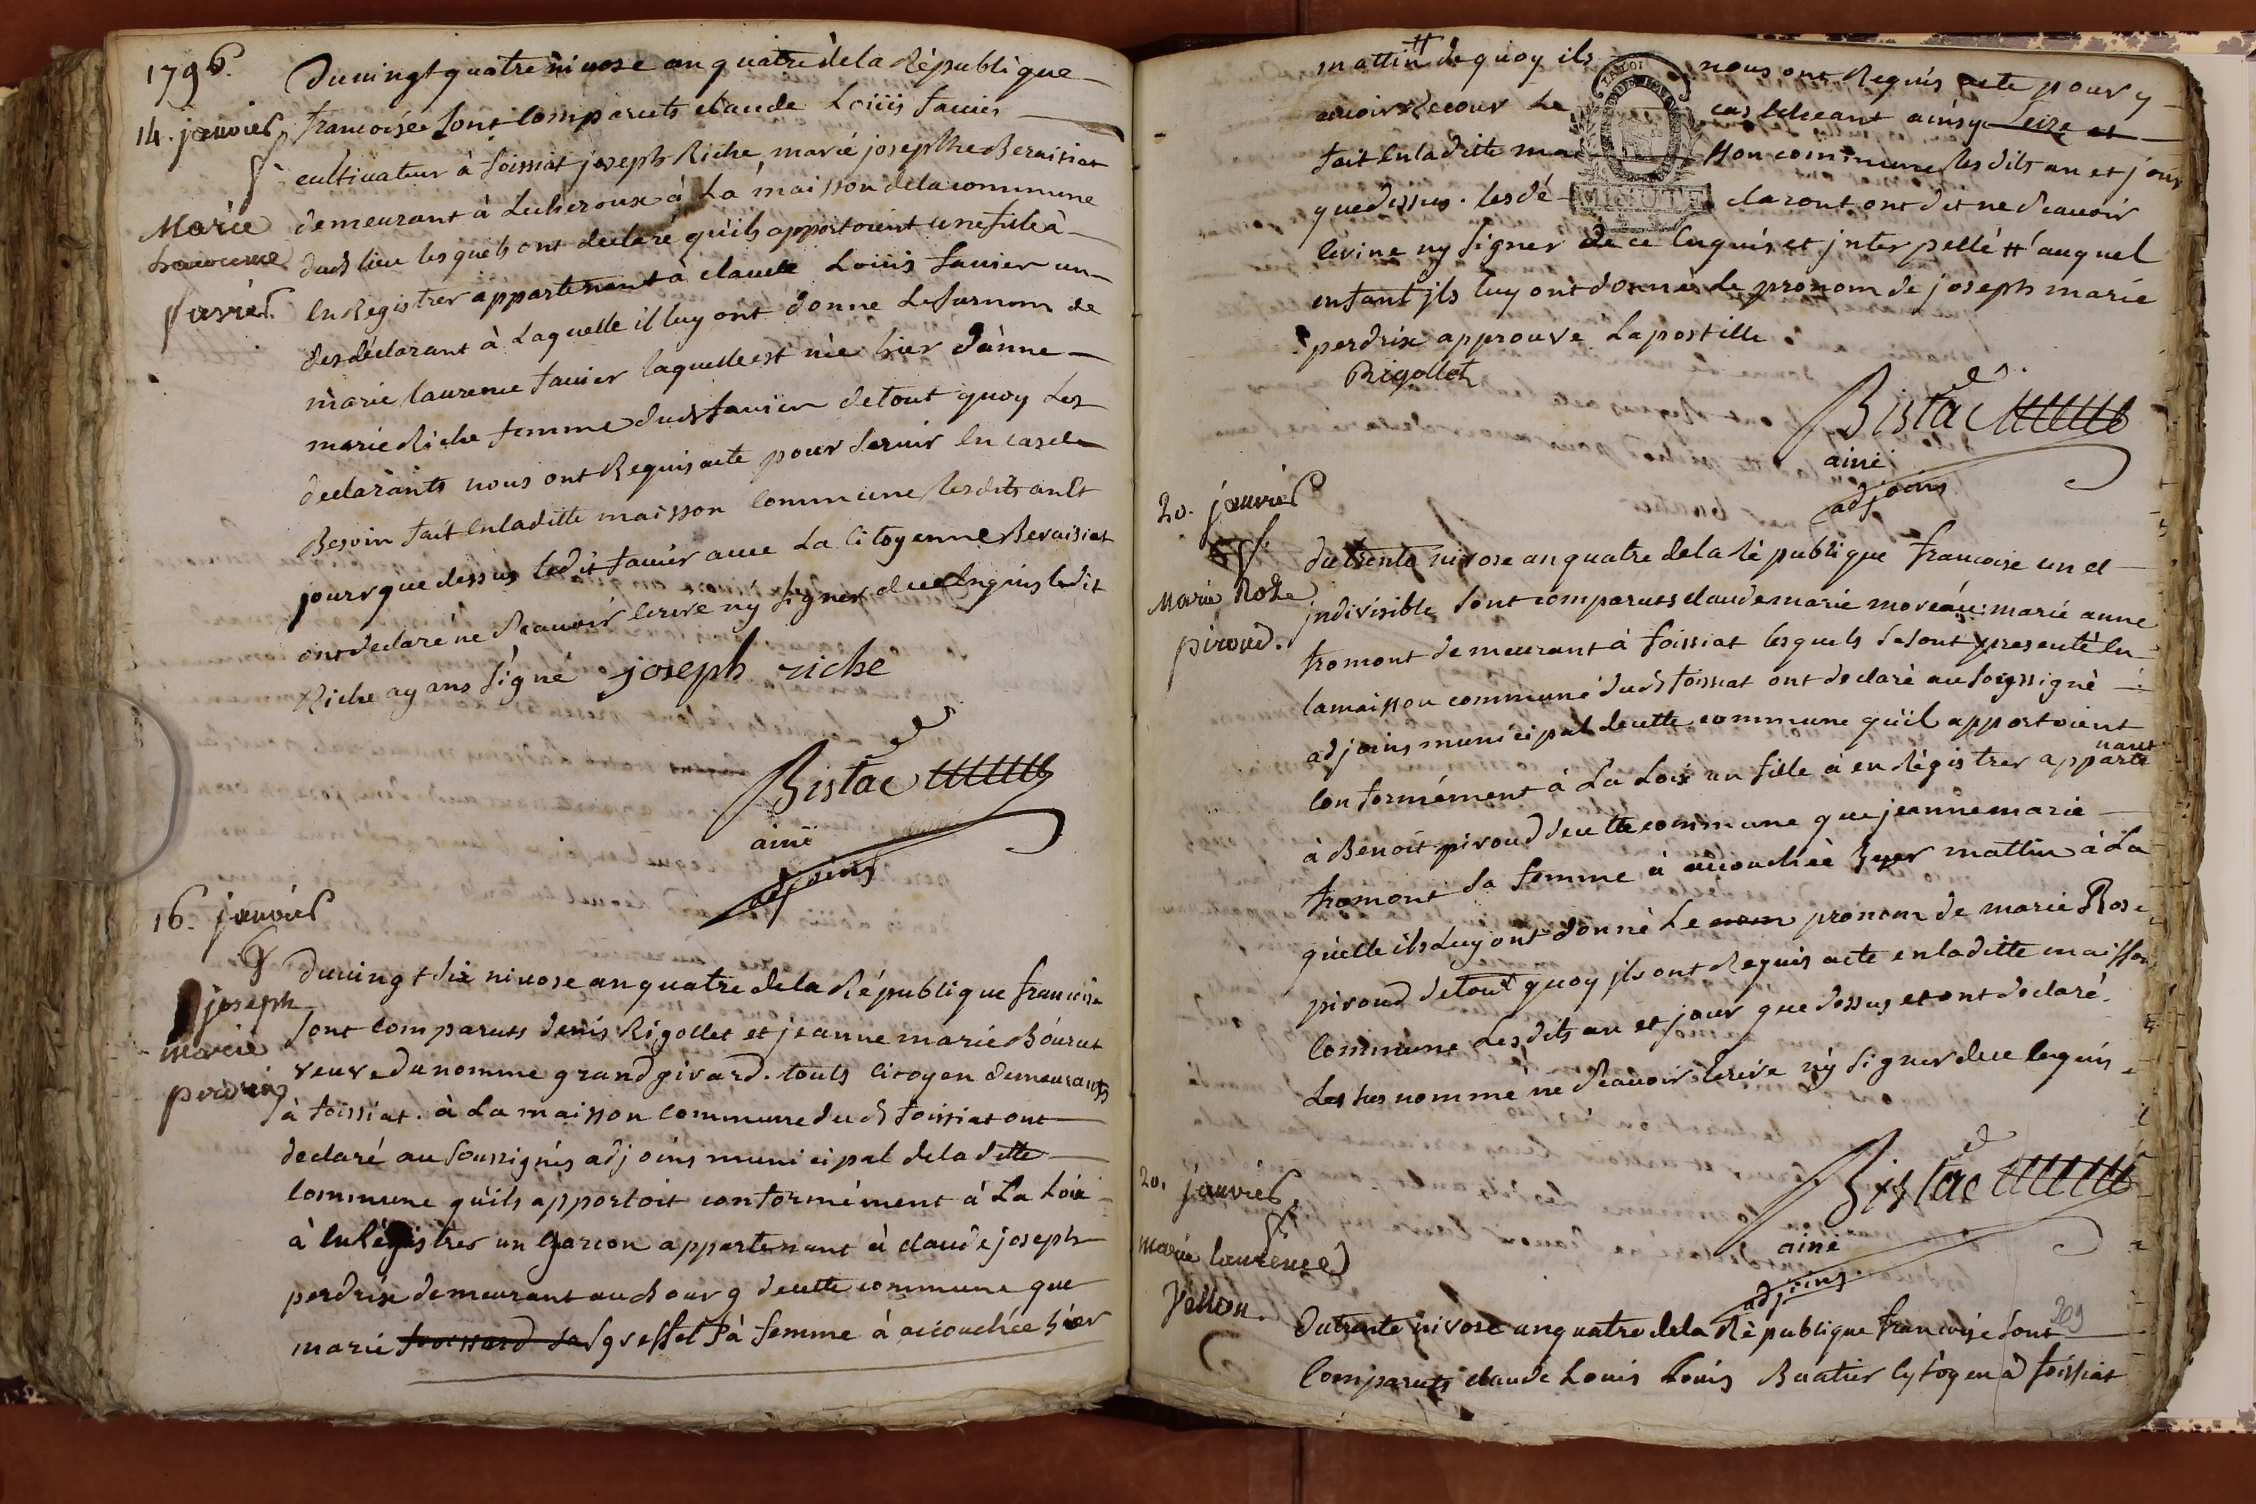 1796.
14. janvier
Marie
Laurence
favier
du vingt quatre nivose an quatre de la République
francoise sont Comparuts claude Loüis favier
cultivateur à foissiat joseph Riche marie josephe Beraisiat
demeurant à Lescheroux à La maisson de la commune
dud lieu les quels ont declaré quils apportoient une fille à
En Registrer appartenant à claude Loüis favier un
des déclarant à Laquelle il luy ont donne Le surnom de
marie laurence favier laquelle est née hier d'anne
marie Riche femme dud favier de tout quoy Les
declarants nous ont Requis acte pour servir En cas de
Besoin fait En laditte maisson Commune les dits an Et
jour que dessus ledit favier avec La Citoyenne Beraisiat
ont declaré ne Scavoir Ecrire ny signer de ce Enquis ledit
Riche ayans signé joseph riche
Bistac
ainé
adjoins
16. janvier
joseph
marie
perdrix
du vingt six nivose an quatre de la République francoise
sont Comparuts denis Rigollet et jeanne marie Bourut
veuve du nomme grand givard. touts citoyen demeurants
à foissiat. à La maisson commune dud foissiat ont
declaré au soussignés adjoins municipal de la ditte
Commune qu'ils apportoit conformément à La Loix
à EnRégistrer un Garcon appartenant à claude joseph
perdrix demeurant au bourg de cette commune que
marie sa greffet sa femme à accouchée hier
mattin de quoy ils nous ont Requis acte pour y
avoir Recour Le cas Echeant ainsy Leize et
fait En laditte maisson commune les dits an et jour
que dessus. les déclaront ont dit ne Scavoir
Ecrire ny signer de ce Enquis et jnterpellé # auquel
enfant jls luy ont donnés le pronom de joseph marie
perdrix approuve La postille
Rigollet
Bistac
ainé
adjoins
20. janvier
Marie Rose
piroud.
du trente nivose an quatre de la République francoise un et
jndivisible sont comparuts claude marie moreau: marie anne
fromont demeurant à foissiat lesquels se sont presenté En
la maisson commune dud foissiat ont declaré au soussigné
adjoins municipal de cette commune qu'il apportoient
Conformément à La Loix un fille à en Régistrer apparte
nant
à Benoit piroud de cette commune que jeanne marie
fromont sa femme à accouchée hyer mattin à La
quelle ils Luy ont donné Le nom pronom de marie Rose
piroud de tout quoy jls ont Requis acte en laditte maisson
Commune Les dits an et jour que dessus et ont declaré
Les sus nommé ne Scavoir Ecrire n'y signer de ce Enquis
Bistac
ainé
adjoins
20. janvier
marie laurence
Vellon.
du trente nivose an quatre de la République francoise sont
Comparuts claude Louis Louis Buatier Cytoyen à foissiat
209
MINUTE